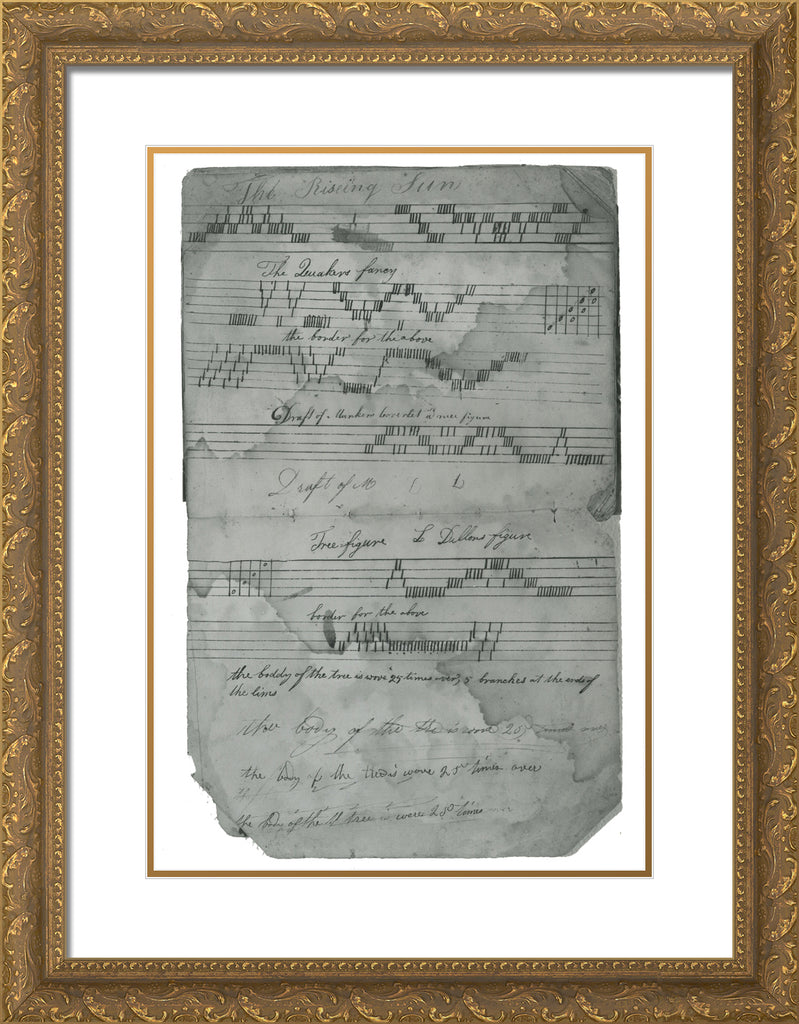 The Riseing Sun
The Quakers fancy
the border for the above
Draft of a nice figure
Draft of M L
Tree figure L Dullons figure
border for the above
the boddy of the tree is wove 25 times over, 5 branches at the ends of
the lims
the body of the the is wove 25
the body of the tree is wove 25 times over
the body of the tree is wove 25 times